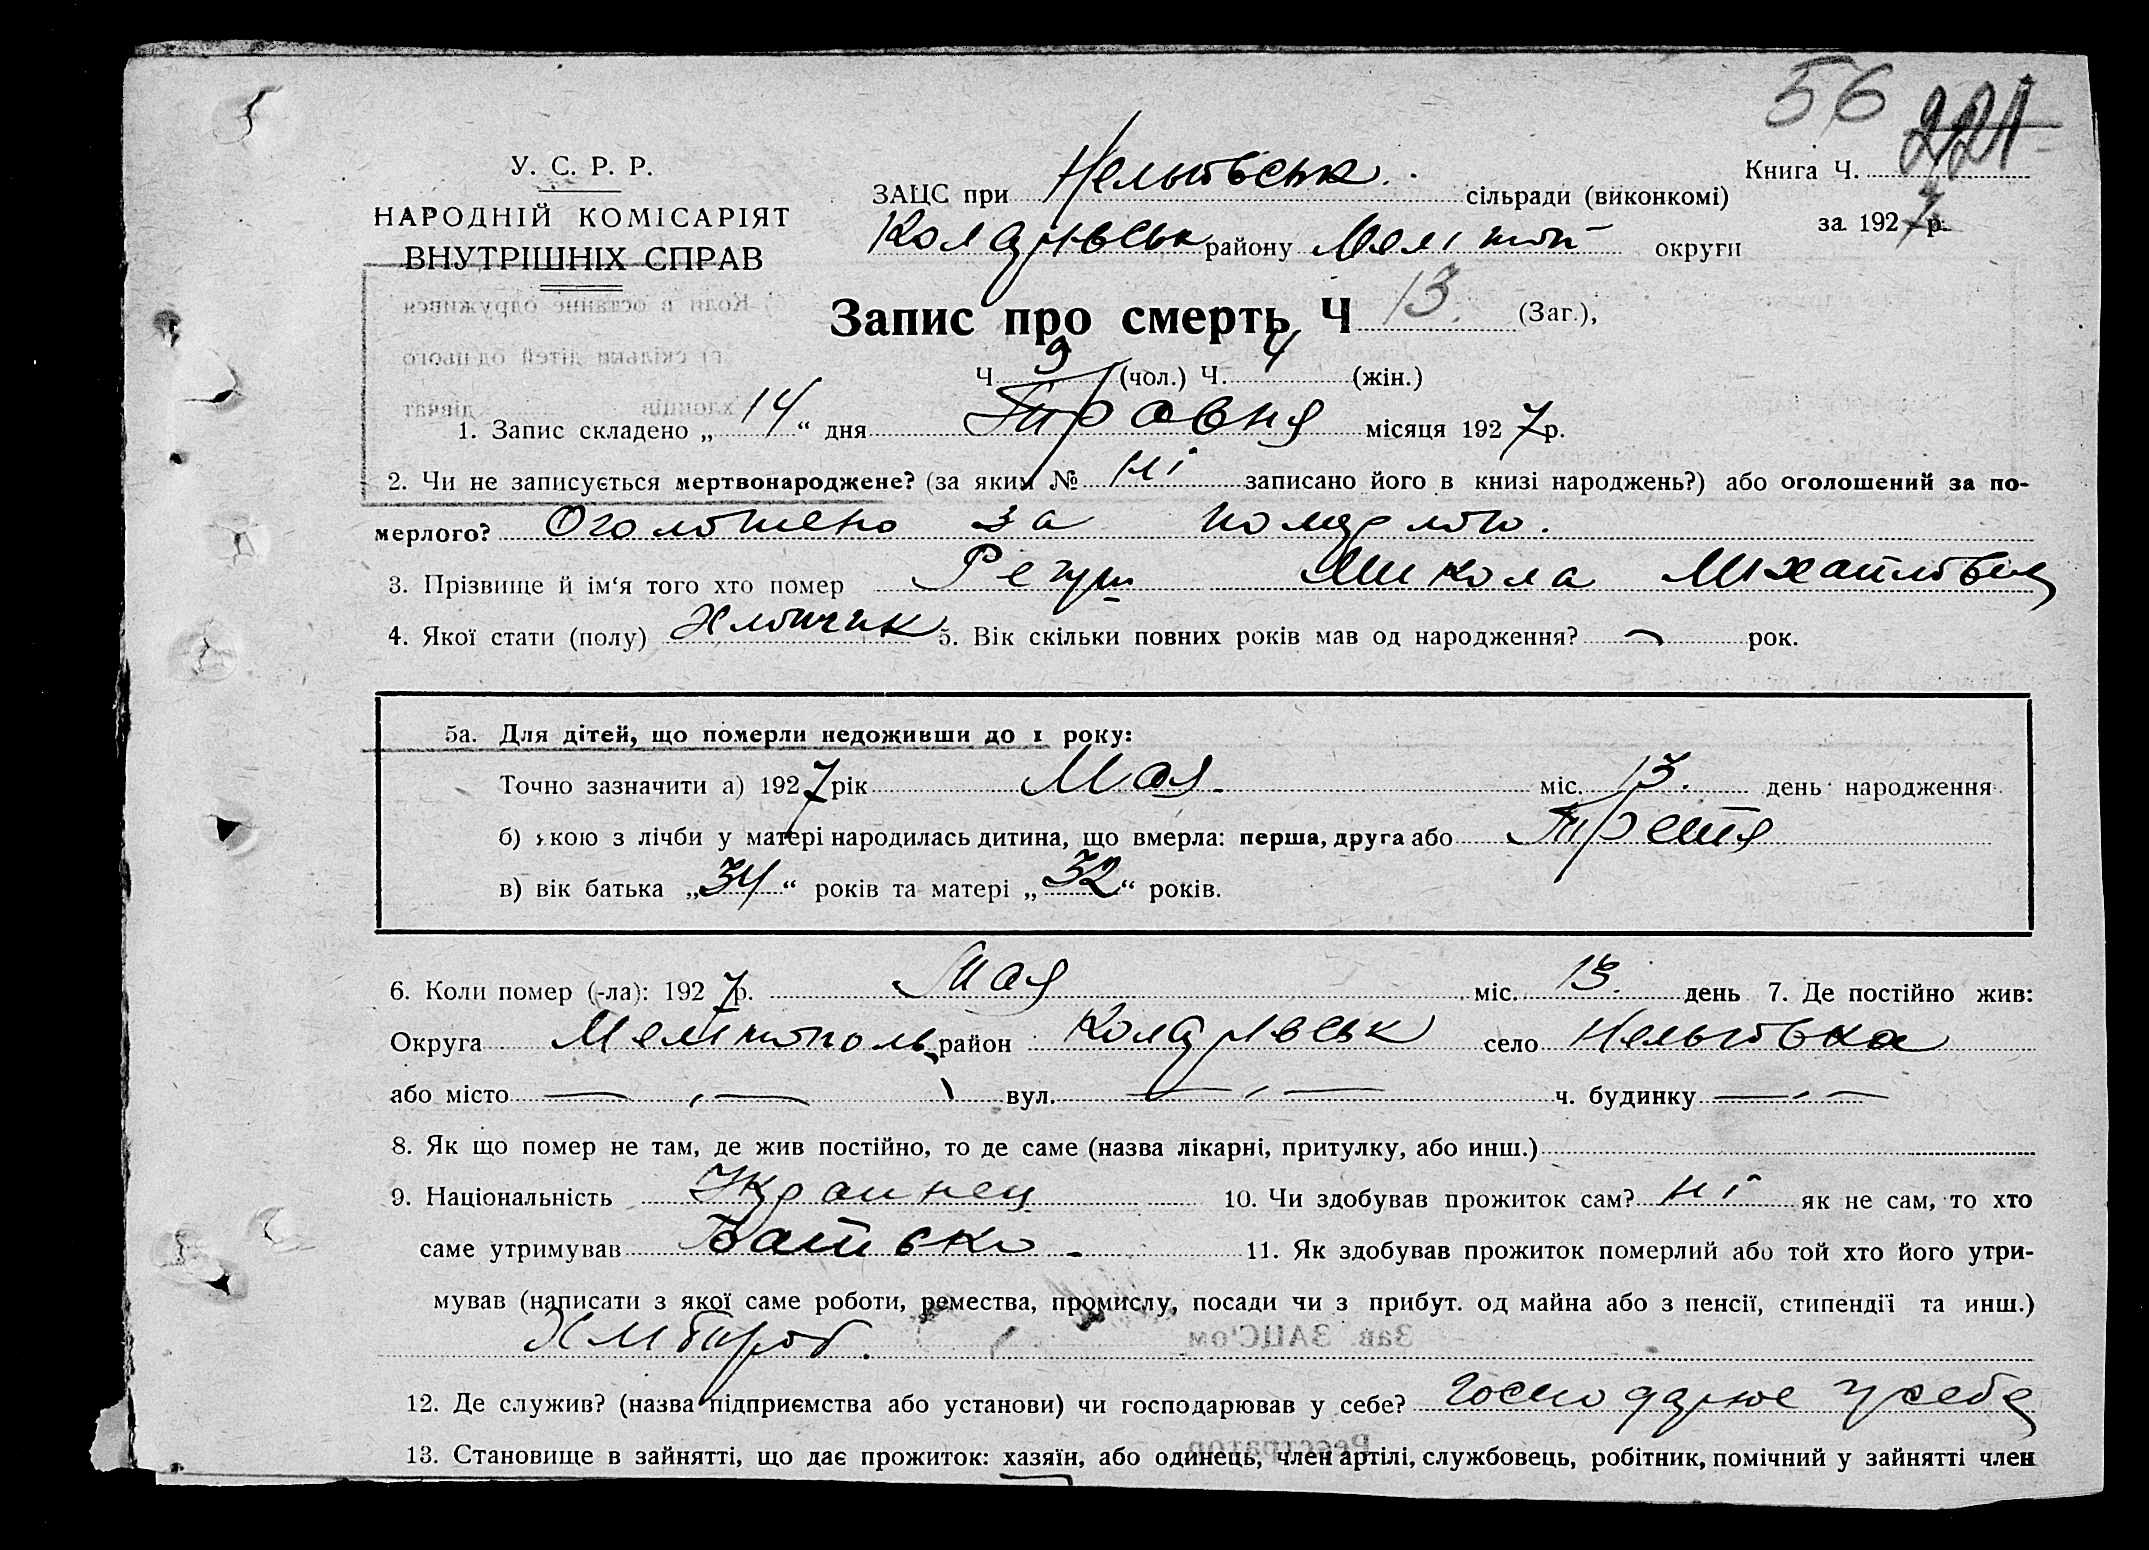 56 221
У. С. Р. Р.
НАРОДНІЙ КОМІСАРІЯТ
ВНУТРІШНІХ СПРАВ
ЗАЦС при Нельговськ. сільради (виконкомі)
Коларівськ району Мелітоп округи
Книга Ч.
за 1927 р.
Запис про смерть Ч 13. (Заг.),
Ч. 9 (чол.) Ч. 4 (жін.)
1. Запис складено „ 14 “ дня Травня місяця 1927 р.
2. Чи не записується мертвонароджене? (за яким № ні записано його в книзі народжень?) або оголошений за по-
мерлого? Оголошено за померлого.
3. Прізвище й ім‘я того хто помер Микола Міхайлович
4. Якої стати (полу) Хлопчик 5. Вік скільки повних років мав од народження? — рок.
5а. Для дітей, що померли недоживши до 1 року:
Точно зазначити а) 1927 рік Мая міс. 13. день народження
б) якою з лічби у матері народилась дитина, що вмерла: перша, друга або Третя
в) вік батька „ 34 “ років та матері „ 32 “ років.
6. Коли помер (-ла): 1927 р. Мая міс. 13. день 7. Де постійно жив:
Округа Мелітополь район Коларівськ село Нельговка
або місто — „ — вул. — „ — ч. будинку — „ —
8. Як що помер не там, де жив постійно, то де саме (назва лікарні, притулку, або инш.)
9. Національність Украинец 10. Чи здобував прожиток сам? ні як не сам, то хто
саме утримував Батько - 11. Як здобував прожиток померлий або той хто його утри-
мував (написати з якої саме роботи, ремества, промислу, посади чи з прибут. од майна або з пенсії, стипендії та инш.)
Хлібороб.
12. Де служив? (назва підприємства або установи) чи господарював у себе? господарює у себе
13. Становище в зайнятті, що дає прожиток: хазяїн, або одинець, член артілі, службовець, робітник, помічний у зайнятті член